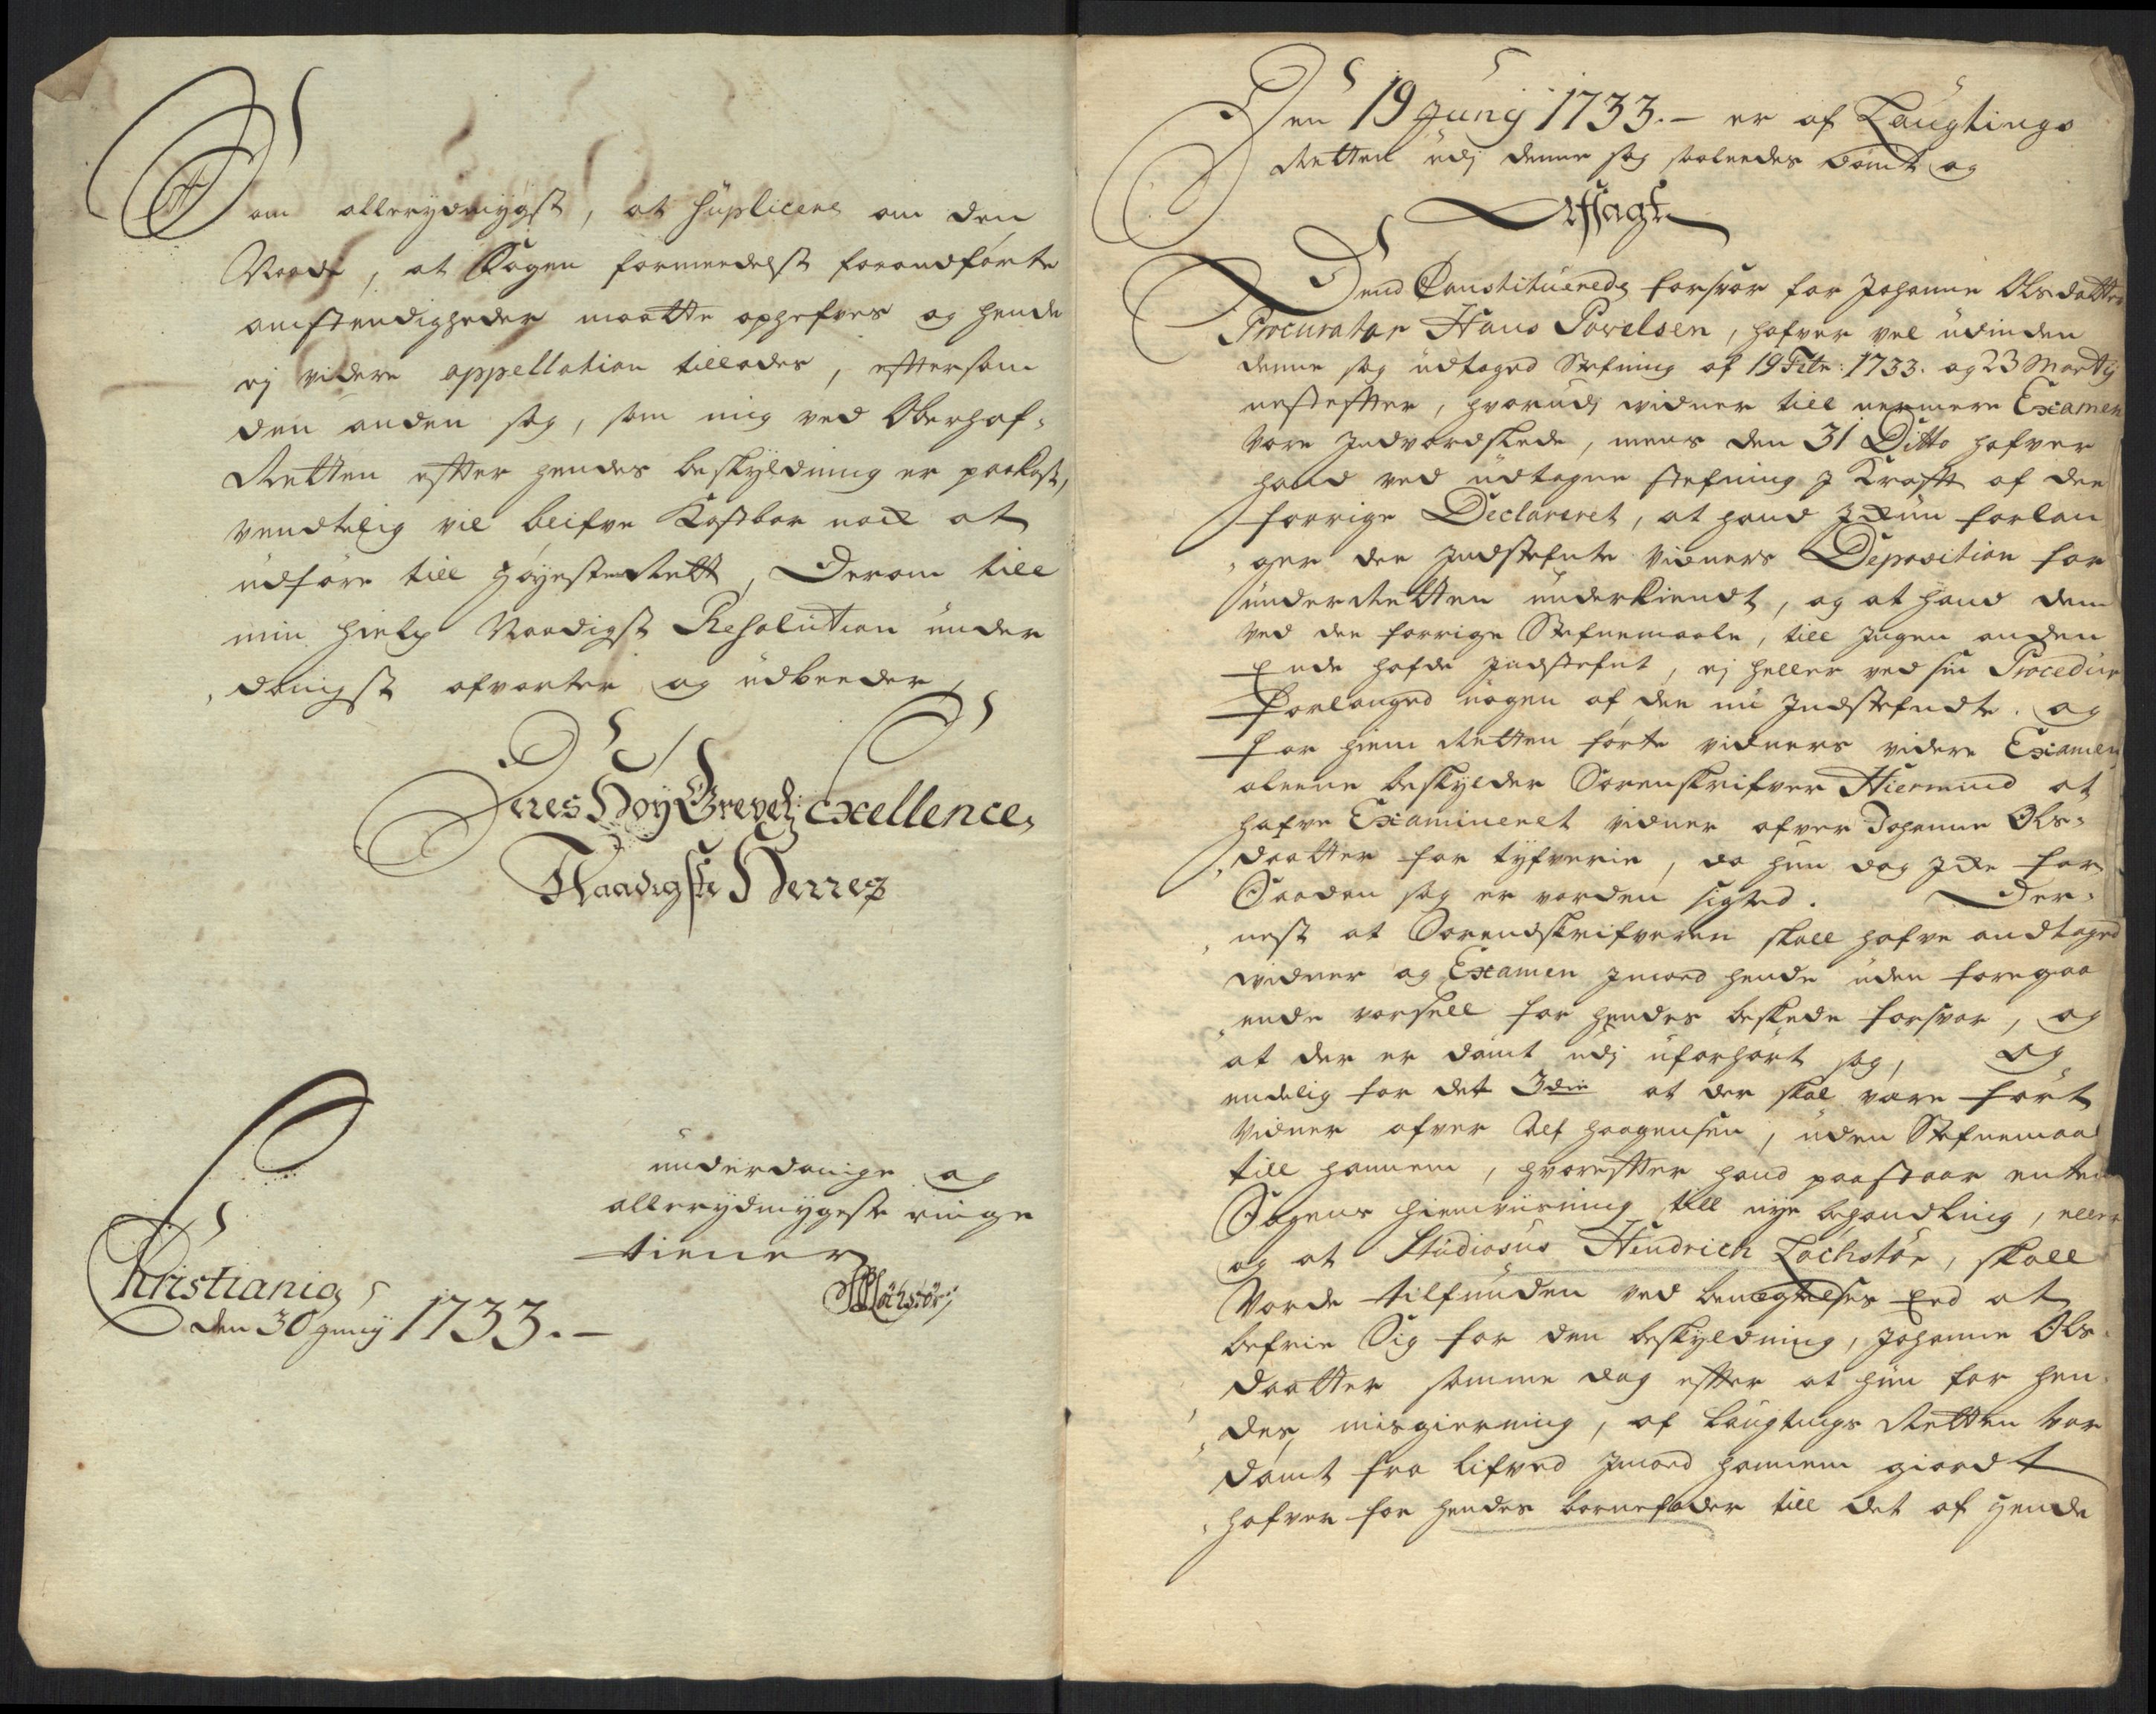 om allerydmygst, at supliceres om den
Naade, at Sagen formeedelst forandførte
omstendigheder maatte ophefves og hende
ej videre appellation tillades, eftersom
den anden sag, som mig ved Oberhof-
Retten efter hendes beskyldning er paakast,
vendtelig vil blifve Kostbar nock at
udføre till Høyeste Rett, Derom till
min hielp Naadigst Resolution under
danigst afvarter og udbeeder,
Deres Høy Grevel: Excellences
Naadigste Herres
underdanige og
allerydmygeste ringe
tiener
Christiania
den 30 Junij 1733.-
Den 19 Junij 1733.- er af Laugtings
Retten udj denne sag saaleedes dømt og
Afsagt
Dend Constituerede forsvar for Johanne Olsdatter
Procurator Hans Povelsen, hafver vel udinden
denne sag udtaged Stefning af 19 Febr: 1733. og 23 Martij
nestefter, hvorudj vidner till nermere Examen
vare Indvardslede, mens den 31 Ditto hafver
hand ved udtagne stefning J Krafft af den
forrige Declareret, at hand Jckun forlan
ger de Indstefnte vidners Deposition for
underRetten underkiendt, og at hand dem
ved den forrige Stefnemaale, till Ingen anden
Ende hafde Indstefnt, ej heller ved sin Procedur
forlanged nogen af de nu Indstefndte og
for hiem Retten førte vidners videre Examen
aleene beskylder Sorenskrifver Hiermind at
hafve Examineret vidner ofver Johanne Ols-
daatter for tyfverie, da hun dog Jcke for
Saadan sag er vorden sigted. Der-
nest at Sorendskrifveren skall hafve andtaged
vidner og Examen Jmod hende uden foregaa
ende varsell for hendes beskede forsvar, og
at der er dømt udj uforhørt sag, og
endelig for det 3die at der skal være ført
Vidner ofver Alf Haagensen, uden Stefnemaal
till hannem, hvorefter hand paastaar enten
Sagens hiemviisning till nye behandling, eller
og at Studiosus Hendrich Lochstør, skall
Vorde tilfunden ved benegtelses Eed at
befrie Sig for den beskyldning, Johanne Ols-
daatter samme dag efter at hun for hen-
des misgierning, af Laugtings Retten var
dømt fra lifved Jmod hannem giordt
hafver for hendes barnefader till det af hende